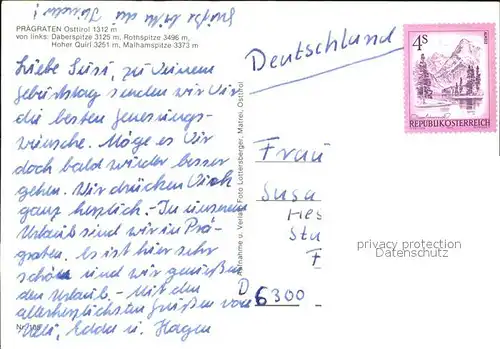 Grüße bitte die Kinder!
PRÄGRATEN Osttirol 1312 m
von links: Daberspitze 3125 m, Rothspitze 3496 m,
Hoher Quirl 3251 m, Malhamspitze 3373 m
Liebe Susi, zu Deinem
Geburtstag senden wir Dir
die besten Genesungs-
wünsche. Möge es Dir
doch bald wieder besser
gehen. Wir drücken Dich
ganz herzlich. - In unserem
Urlaub sind wir in Prä-
graten. Es ist hier sehr
schön und wir genießen
den Urlaub. - Mit den
allerherzlichsten Grüßen von
Ueli, Edda u. Hagen
Nr. 108
Aufnahme u. Verlag Foto Lottersberger, Matrei, Osttirol
Deutschland
4S
REPUBLIK ÖSTERREICH
Frau
Susa
Hes
Stu
F
D 6300
privacy protection
Datenschutz